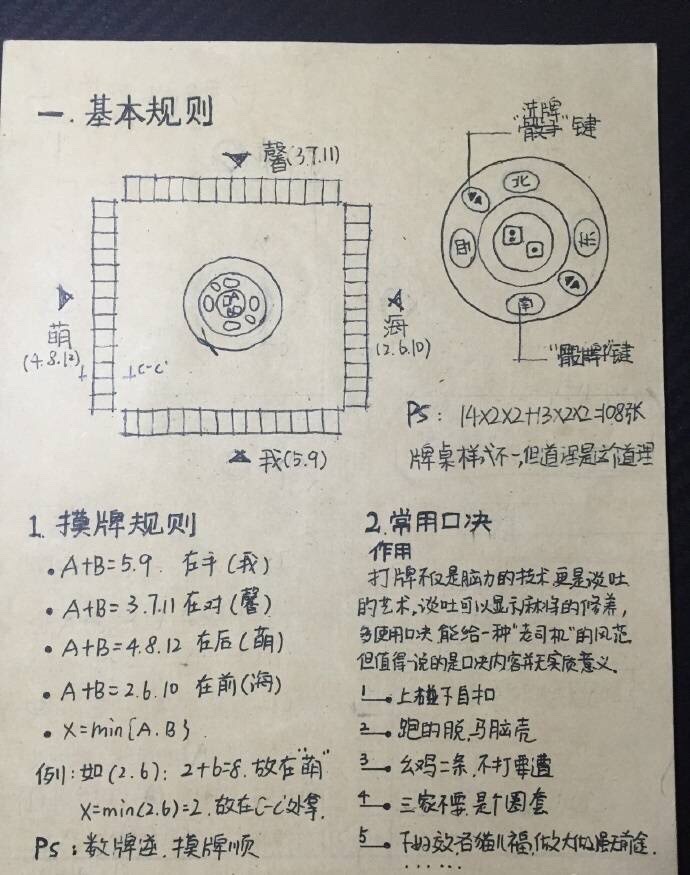 一.基本规则
馨(3.7.11)
萌
(4.8.12)
C-C'
海
(2.6.10)
我(5.9)
洗牌
"骰子"键
北
西
东
南
键
PS: 14×2×2+13×2×2=108张
牌桌样式不一,但道理是这个道理
1.摸牌规则
• A+B=5.9. 在手(我)
• A+B=3.7.11 在对(馨)
• A+B=4.8.12 在后(萌)
• A+B=2.6.10 在前(海)
• X=min{A.B}
例1:如(2.6): 2+6=8.放在"萌"
X=min(2.6)=2.放在C-C'处拿.
PS:数牌逆.摸牌顺
2.常用口决
作用
打牌不仅是脑力的技术,更是谈吐
的艺术,谈吐可以显示麻将的修养,
多使用口决,能给一种"老司机"的风范
但值得一说的是口决内容并无实质意义.
1—.上碰下自扣
2—.跑的脱,马脑壳
3—.幺鸡二条,不打要遭
4—.三家不要,是个圈套
5—.
......